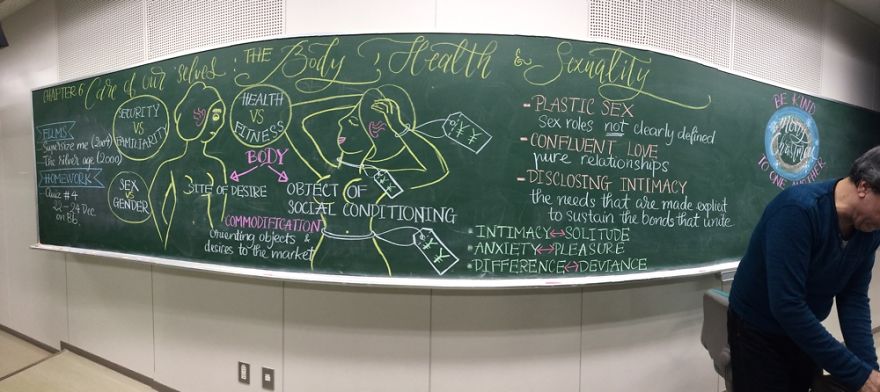 CHAPTER 6 Care of Our selves : THE Body , Health & Sexuality
FILMS
- Supersize me (2004)
- The silver age (2000)
HOMEWORK
- Quiz #4
22 - 24 Dec
on Bb
SECURITY
VS
FAMILIARITY
SEX
VS
GENDER
HEALTH
VS
FITNESS
BODY
SITE OF DESIRE
OBJECT OF
SOCIAL CONDITIONING
COMMODIFICATION
Orienting objects &
desires to the market
¥ ¥
¥ ¥
¥ ¥
- PLASTIC SEX
Sex roles not clearly defined
- CONFLUENT LOVE
pure relationships
- DISCLOSING INTIMACY
the needs that are made explicit
to sustain the bonds that unite
• INTIMACY ↔ SOLITUDE
• ANXIETY ↔ PLEASURE
• DIFFERENCE ↔ DEVIANCE
BE KIND
Merry
Christmas
TO ONE ANOTHER